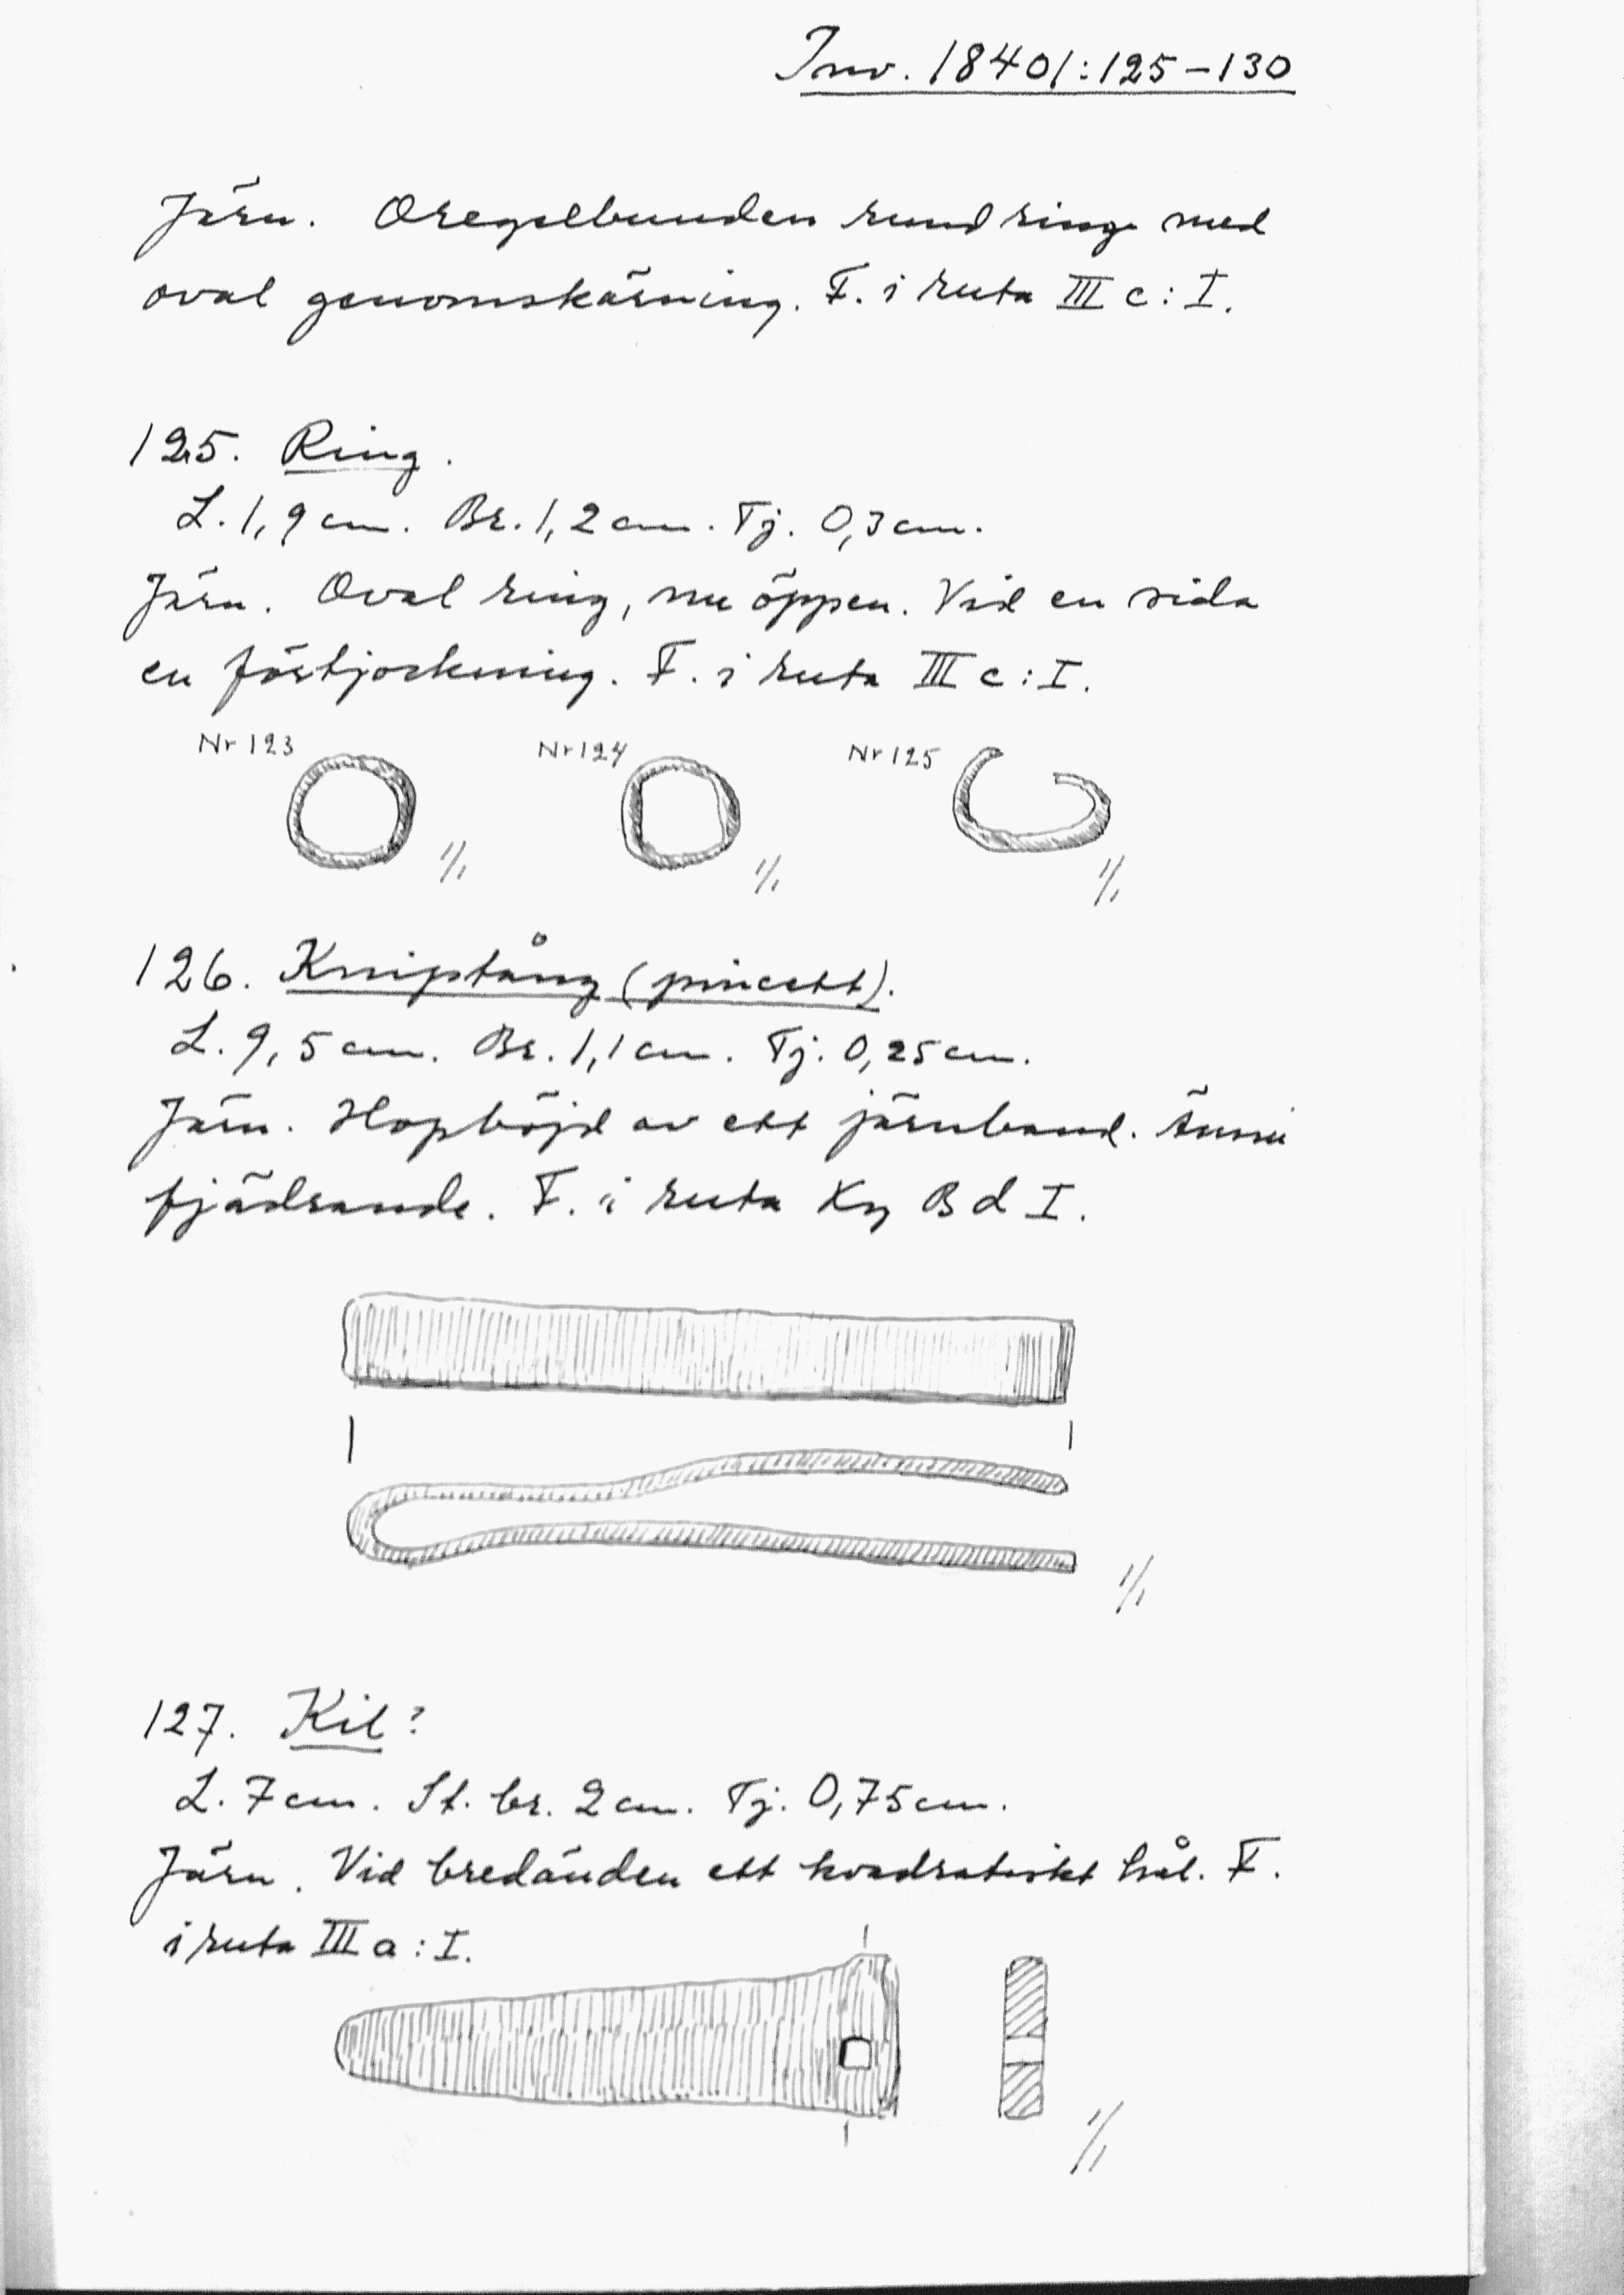 Inv. 18401:125-130
Järn. Oregelbunden rund ring med
oval genomskärning. F. i ruta III c:I.
125. Ring.
L. 1,9 cm. Br. 1,2 cm. Tj. 0,3 cm.
Järn. Oval ring, nu öppen. Vid en sida
en förtjockning. F. i ruta III c:I.
Nr 123 Nr 124 Nr 125
1/1 1/1 1/1
126. Kniptång (pincett).
L. 9,5 cm. Br. 1,1 cm. Tj. 0,25 cm.
Järn. Hopböjd av ett järnband. Ännu
fjädrande. F. i ruta B d I.
1/1
127. Kil?
L. 7 cm. St. br. 2 cm. Tj. 0,75 cm.
Järn. Vid bredänden ett kvadratiskt hål. F.
i ruta III a:I.
1/1